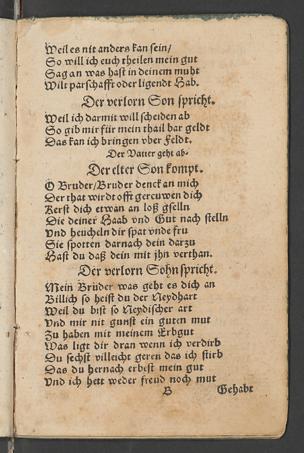 Weil es nit anders kan sein/
So will ich euch theilen mein gut
Sag an was hast in deinem muht
Wilt parschafft oder ligendt Hab.
Der verlorn Son spricht.
Weil ich darmit will scheiden ab
So gib mir für mein thail bar geldt
Das kan ich bringen vber Feldt.
Der Vatter geht ab.
Der elter Son kompt.
O Bruder/Bruder denck an mich
Der that wirdt offt gerewen dich
Kerst dich etwan an loß gselln
Die deiner Haab vnd Gut nach stelln
Vnd heucheln dir spat vnde fru
Sie spotten darnach dein darzu
Hast du daß dein mit jhn verthan.
Der verlorn Sohn spricht.
Mein Brüder was geht es dich an
Billich so heist du der Neydhart
Weil du bist so Neydischer art
Vnd mir nit gunst ein guten mut
Zu haben mit meinem Erbgut
Was ligt dir dran wenn ich verdirb
Du sechst villeicht geren das ich stirb
Das du hernach erbist mein gut
Vnd ich hett weder freud noch mut
B Gehabt